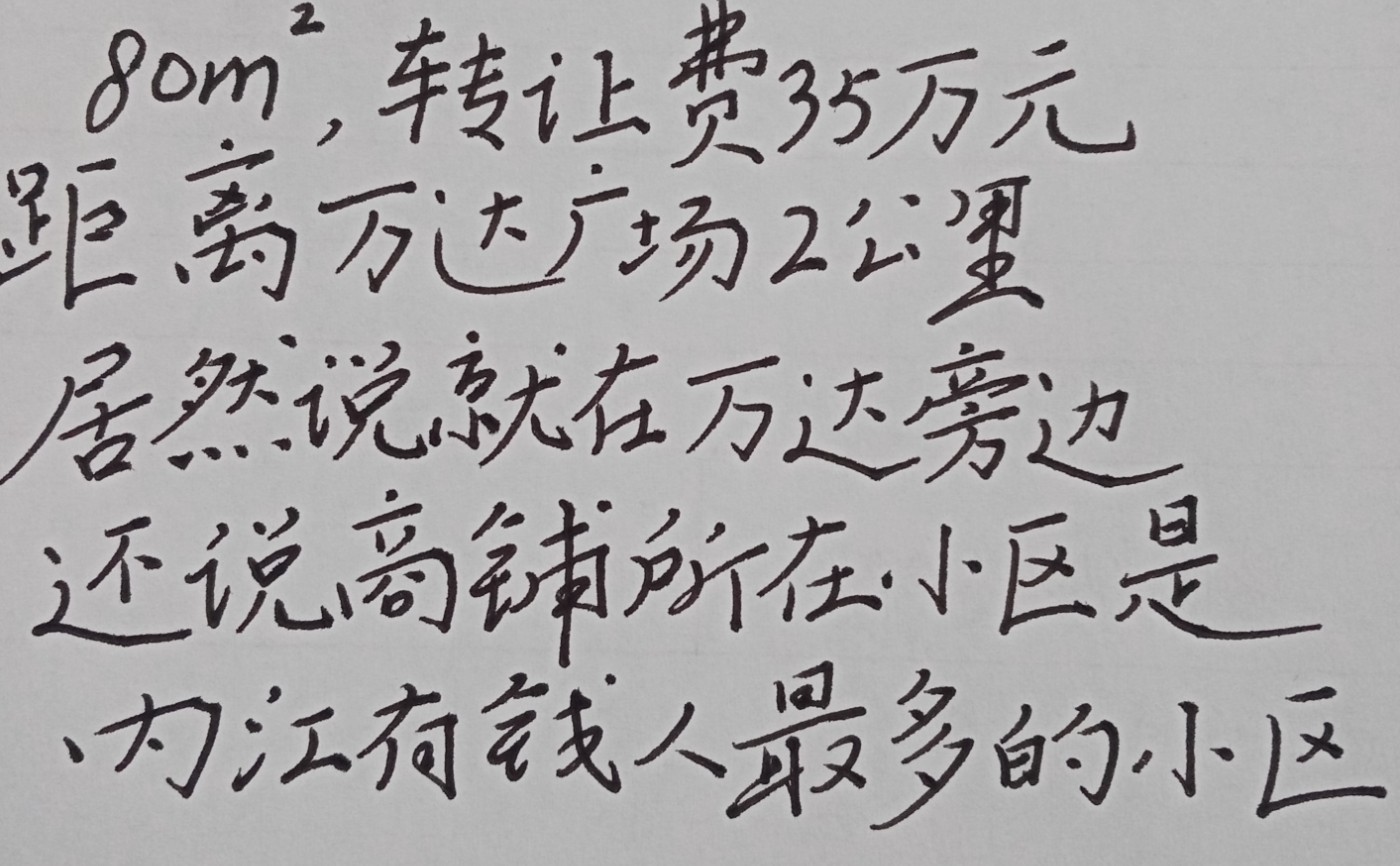 80m²,转让费35万元
距离万达广场2公里
居然说就在万达旁边
还说商铺所在小区是
内江有钱人最多的小区